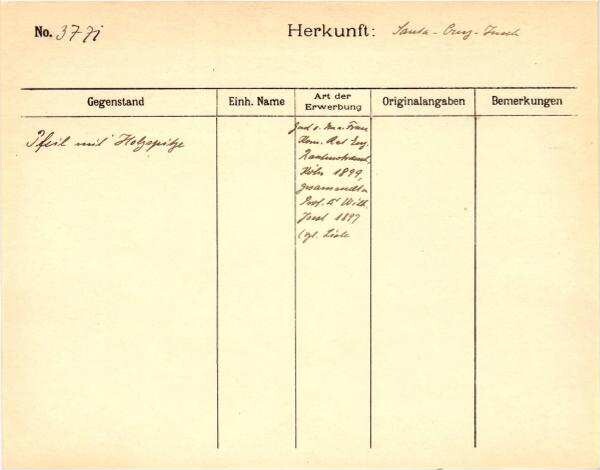 No. 377i Herkunft: Santa-Cruz-Inseln
Gegenstand
Einh. Name
Art der
Erwerbung
Originalangaben
Bemerkungen
Pfeil mit Holzspitze
Frau
Kom. Rat Eug.
Rautenstrauch,
Köln 1899,
gesammelt v.
Prof. Dr Wilh.
Joest 1897
(vgl. Liste